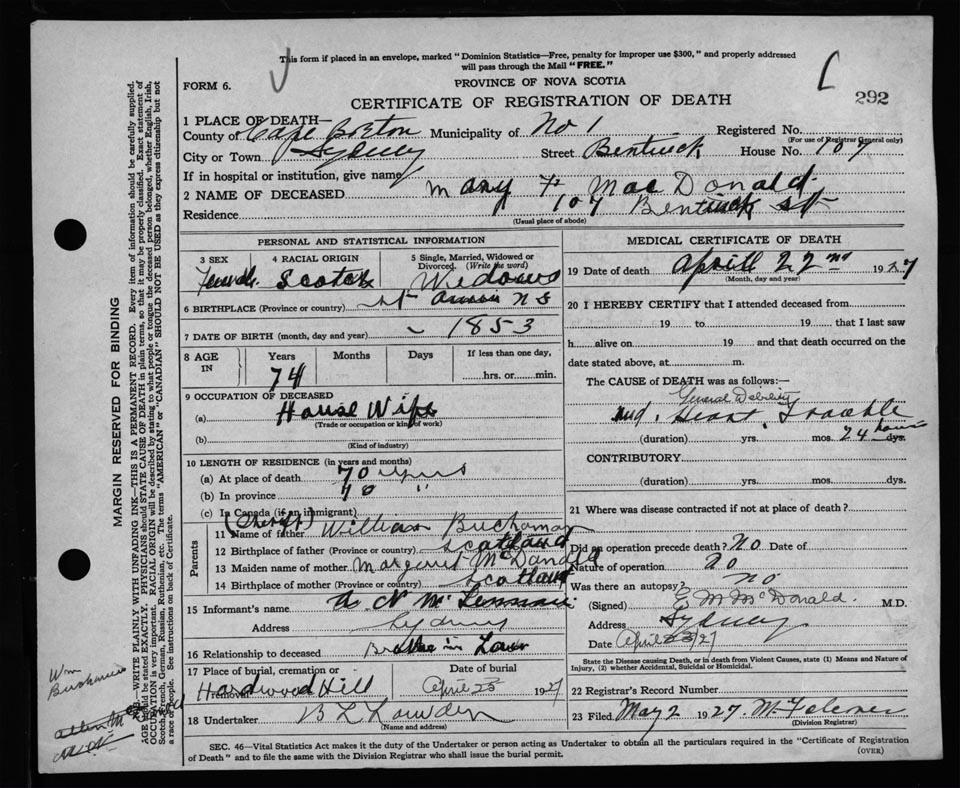 This form if placed in an envelope, marked "Dominion Statistics—Free, penalty for improper use $300," and properly addressed
will pass through the Mail "FREE."
FORM 6.
PROVINCE OF NOVA SCOTIA
CERTIFICATE OF REGISTRATION OF DEATH
292
1 PLACE OF DEATH—
County of Cape Breton Municipality of No 1 Registered No.
(For use of Registrar General only)
City or Town Sydney Street Bentinck House No. 107
If in hospital or institution, give name
2 NAME OF DECEASED Mary F MacDonald
Residence 107 Bentinck St
(Usual place of abode)
PERSONAL AND STATISTICAL INFORMATION
3 SEX Female
4 RACIAL ORIGIN Scotch
5 Single, Married, Widowed or Divorced. (Write the word) Widowed
6 BIRTHPLACE (Province or country) St Anns N S
7 DATE OF BIRTH (month, day and year) 1853
8 AGE IN Years Months Days If less than one day,
74 hrs. or min.
9 OCCUPATION OF DECEASED
(a) House Wife
(Trade or occupation or kind of work)
(b)
(Kind of industry)
10 LENGTH OF RESIDENCE (in years and months)
(a) At place of death 70 years
(b) In province 70 "
(c) In Canada (if an immigrant)
Parents
11 Name of father William Buchanan
12 Birthplace of father (Province or country) Scotland
13 Maiden name of mother Margaret McDonald
14 Birthplace of mother (Province or country) Scotland
15 Informant's name A N McLennan
Address Sydney
16 Relationship to deceased Brother in Law
17 Place of burial, cremation or removal Date of burial
Hardwood Hill April 25 1927
18 Undertaker B L Lowden
(Name and address)
MEDICAL CERTIFICATE OF DEATH
19 Date of death April 22nd 1927
(Month, day and year)
20 I HEREBY CERTIFY that I attended deceased from
19 to 19 that I last saw
h alive on 19 and that death occurred on the
date stated above, at m.
The CAUSE of DEATH was as follows:—
General Debility
and Heart Trouble
(duration) yrs. mos. 24 hours dys.
CONTRIBUTORY
(duration) yrs. mos. dys.
21 Where was disease contracted if not at place of death?
Did an operation precede death? No Date of
Nature of operation no
Was there an autopsy? no
(Signed) E M McDonald. M.D.
Address Sydney
Date April /27
State the Disease causing Death, or in death from Violent Causes, state (1) Means and Nature of
Injury, (2) whether Accidental, Suicidal or Homicidal.
22 Registrar's Record Number
23 Filed May 2 1927
(Division Registrar)
SEC. 46—Vital Statistics Act makes it the duty of the Undertaker or person acting as Undertaker to obtain all the particulars required in the "Certificate of Registration
of Death" and to file the same with the Division Registrar who shall issue the burial permit.
(OVER)
MARGIN RESERVED FOR BINDING
N.B.—WRITE PLAINLY WITH UNFADING INK—THIS IS A PERMANENT RECORD. Every item of information should be carefully supplied.
AGE should be stated EXACTLY. PHYSICIANS should STATE CAUSE OF DEATH in plain terms, so that it may be properly classified. Exact statement of
OCCUPATION is very important. RACIAL ORIGIN will be described by stating to what people or tongue the deceased person belonged, whether English, Irish,
Scotch, French, German, Russian, Ruthenian, etc. The terms "AMERICAN" or "CANADIAN" SHOULD NOT BE USED as they express citizenship but not
a race of people. See instructions on back of Certificate.
Wm
Buchanan